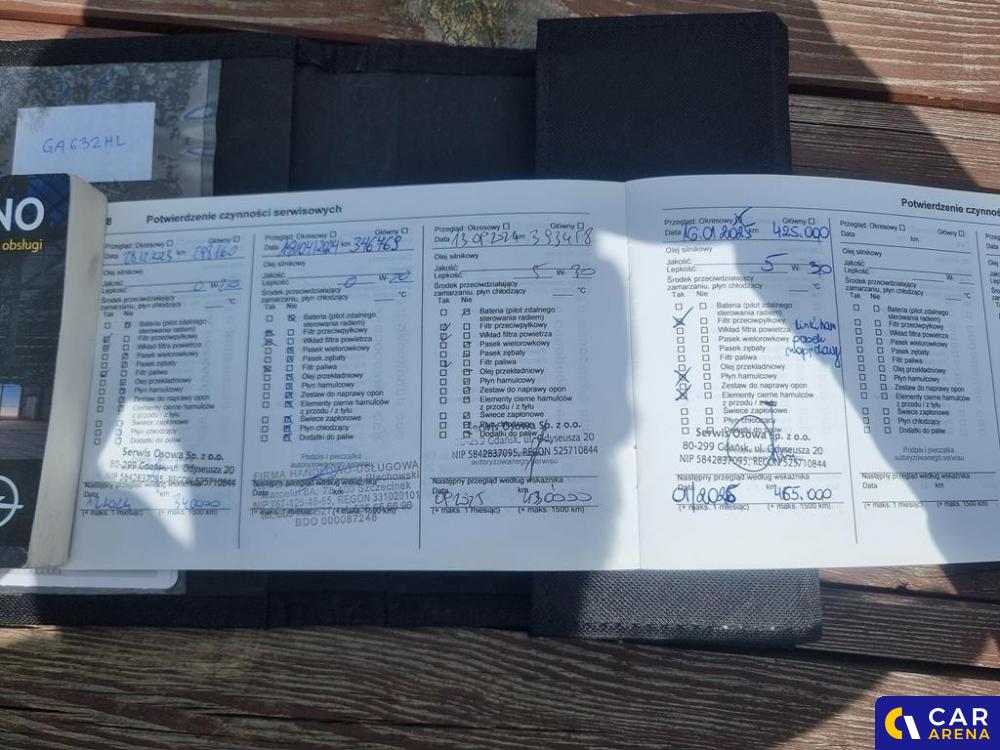 GA632HL
NO
obsługi
8 Potwierdzenie czynności serwisowych
Przegląd: Okresowy Główny
Data 28.12.2023 km
Olej silnikowy
Jakość:
Lepkość: 0 W
Środek przeciwdziałający
zamarzaniu, płyn chłodzący °C
Tak Nie
Bateria (pilot zdalnego
sterowania radiem)
Filtr przeciwpyłkowy
Wkład filtra powietrza
Pasek wielorowkowy
Pasek zębaty
Filtr paliwa
Olej przekładniowy
Płyn hamulcowy
Zestaw do naprawy opon
Elementy cierne hamulców
z przodu / z tyłu
Świece zapłonowe
Płyn chłodzący
Dodatki do paliw
Serwis Osowa Sp. z o.o.
80-299 Gdańsk, ul. Odyseusza 20
NIP 5842837095, REGON 525710844
Następny przegląd według wskaźnika
Data km
340000
(+ maks. 1 miesiąc) (+ maks. 1500 km)
Przegląd: Okresowy Główny
Data km
Olej silnikowy
Jakość:
Lepkość: 0 W 20
Środek przeciwdziałający
zamarzaniu, płyn chłodzący °C
Tak Nie
Bateria (pilot zdalnego
sterowania radiem)
Filtr przeciwpyłkowy
Wkład filtra powietrza
Pasek wielorowkowy
Pasek zębaty
Filtr paliwa
Olej przekładniowy
Płyn hamulcowy
Zestaw do naprawy opon
Elementy cierne hamulców
z przodu / z tyłu
Świece zapłonowe
Płyn chłodzący
Dodatki do paliw
Podpis i pieczątka
autoryzowanego
Następny przegląd według wskaźnika
BDO 000087248
Przegląd: Okresowy Główny
Data 13.09.2024 km 383418
Olej silnikowy
Jakość:
Lepkość: 5 W 30
Środek przeciwdziałający
zamarzaniu, płyn chłodzący °C
Tak Nie
Bateria (pilot zdalnego
sterowania radiem)
Filtr przeciwpyłkowy
Wkład filtra powietrza
Pasek wielorowkowy
Pasek zębaty
Filtr paliwa
Olej przekładniowy
Płyn hamulcowy
Zestaw do naprawy opon
Elementy cierne hamulców
z przodu / z tyłu
Świece zapłonowe
Dodatki do paliw
Serwis Osowa Sp. z o.o.
80-299 Gdańsk, ul. Odyseusza 20
NIP 5842837095, REGON 525710844
autoryzowanego serwisu
Następny przegląd według wskaźnika
Data km
430000
(+ maks. 1 miesiąc) (+ maks. 1500 km)
Przegląd: Okresowy Główny
Data 16.01.2025 km 425.000
Olej silnikowy
Jakość:
Lepkość: 5 W 30
Środek przeciwdziałający
zamarzaniu, płyn chłodzący °C
Tak Nie
Bateria (pilot zdalnego
sterowania radiem)
Filtr przeciwpyłkowy
Wkład filtra powietrza
Pasek wielorowkowy
Pasek zębaty
Filtr paliwa
Olej przekładniowy
Płyn hamulcowy
Zestaw do naprawy opon
Elementy cierne hamulców
z przodu / z tyłu
Świece zapłonowe
Płyn chłodzący
Dodatki do paliw
Serwis Osowa Sp. z o.o.
80-299 Gdańsk, ul. Odyseusza 20
NIP 5842837095, REGON 525710844
Następny przegląd według wskaźnika
Data km 455.000
(+ maks. 1 miesiąc) (+ maks. 1500 km)
Potwierdzenie czynnoś
Przegląd: Okresowy Główny
Data km
Olej silnikowy
Jakość:
Lepkość: W
Środek przeciwdziałający
zamarzaniu, płyn chłodzący °C
Tak Nie
Bateria (pilot zdalnego
sterowania radiem)
Filtr przeciwpyłkowy
Wkład filtra powietrza
Pasek wielorowkowy
Pasek zębaty
Filtr paliwa
Olej przekładniowy
Płyn hamulcowy
Zestaw do naprawy opon
Elementy cierne hamulców
z przodu / z tyłu
Świece zapłonowe
Płyn chłodzący
Dodatki do paliw
Podpis i pieczątka
autoryzowanego serwisu
Następny przegląd według wskaźnika
Data km
(+ maks. 1 miesiąc) (+ maks. 1500 km)
CAR
ARENA